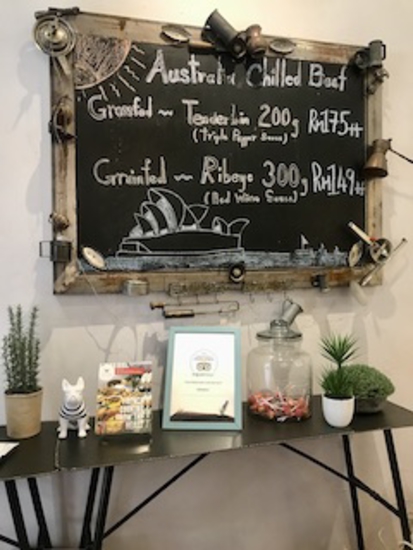 Australia Chilled Beef
Grassfed ~ Tenderloin 200g RM175++
(Triple Pepper Sauce)
Grainfed ~ Ribeye 300g RM149++
(Red Wine Sauce)